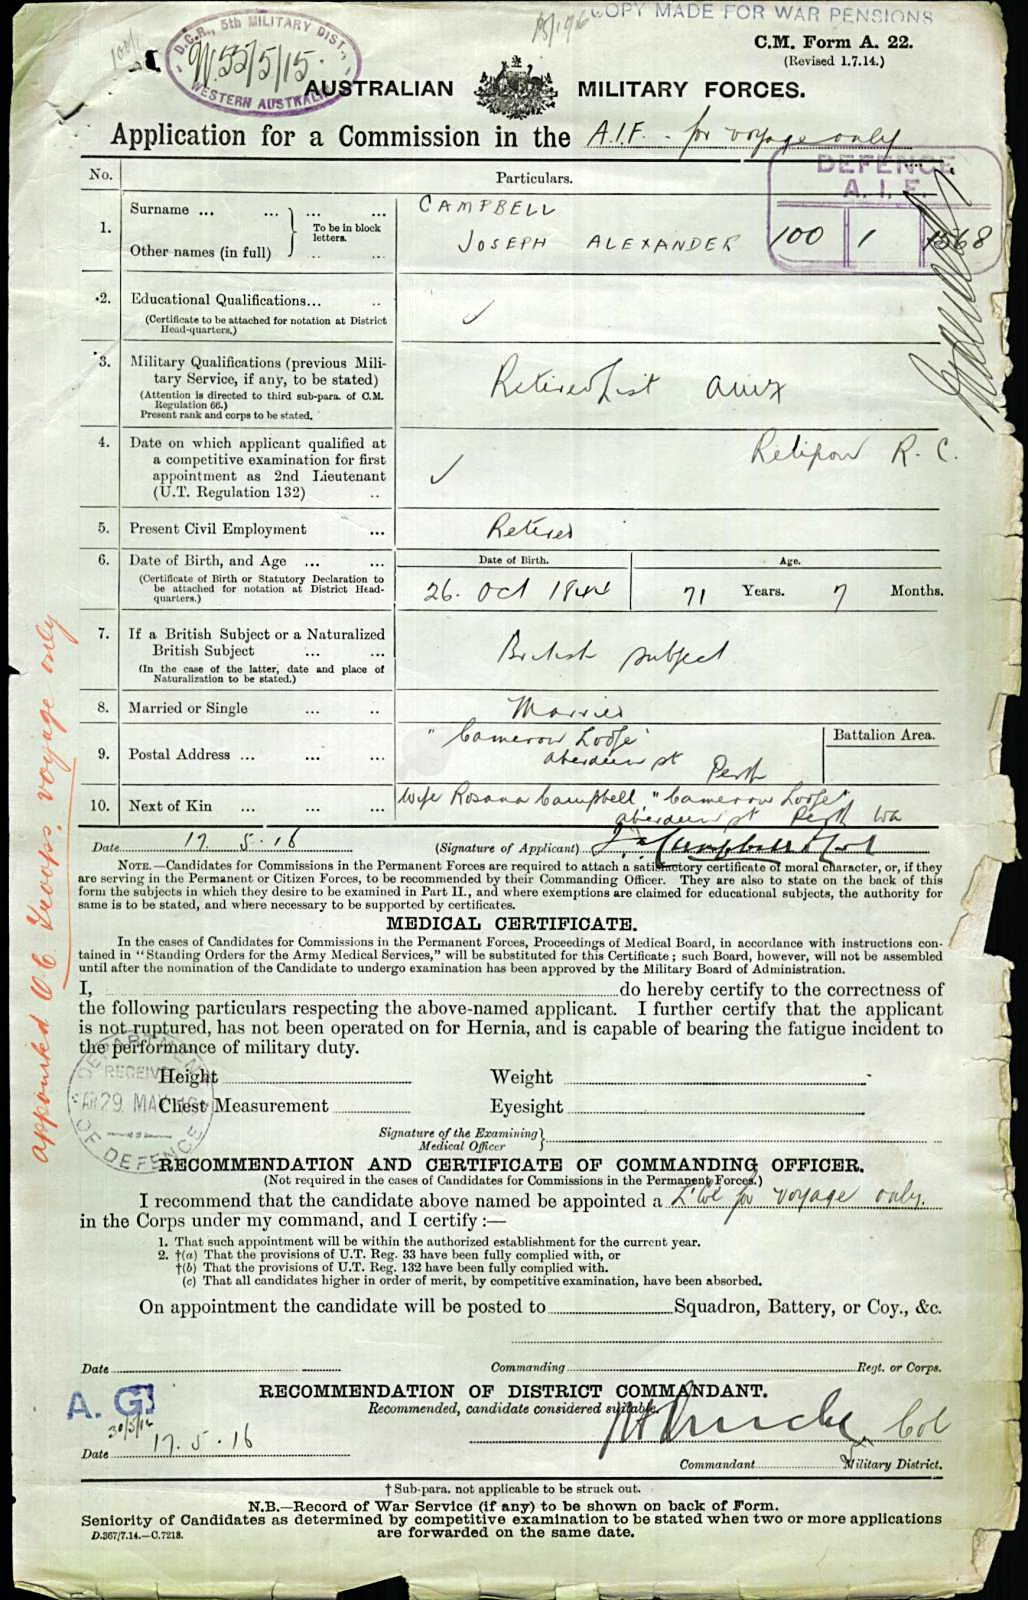 COPY MADE FOR WAR PENSIONS
C.M. Form A. 22.
(Revised 1.7.14.)
D.C.R., 5th MILITARY DIST.,
W55/5/15.
WESTERN AUSTRALIA
AUSTRALIAN MILITARY FORCES.
Application for a Commission in the A.I.F. - for voyage only
DEFENCE
A. I. F.
100 1 1568
No. Particulars.
1. Surname ... ... ... ... To be in block letters. CAMPBELL
Other names (in full) JOSEPH ALEXANDER
2. Educational Qualifications... ..
(Certificate to be attached for notation at District
Head-quarters.)
3. Military Qualifications (previous Mili-
tary Service, if any, to be stated)
(Attention is directed to third sub-para. of C.M.
Regulation 66.)
Present rank and corps to be stated.
Retired List
4. Date on which applicant qualified at
a competitive examination for first
appointment as 2nd Lieutenant
(U.T. Regulation 132) ..
Religion R. C.
5. Present Civil Employment ... Retired
6. Date of Birth, and Age ... ...
(Certificate of Birth or Statutory Declaration to
be attached for notation at District Head-
quarters.)
Date of Birth. Age.
26. Oct 1844 71 Years. 7 Months.
7. If a British Subject or a Naturalized
British Subject ... ...
(In the case of the latter, date and place of
Naturalization to be stated.)
British subject
8. Married or Single ... .. Married
9. Postal Address ... ... ... "Cameron Lodge"
Aberdeen st Perth
Battalion Area.
10. Next of Kin ... ... ... Wife Rosana Campbell, "Cameron Lodge"
Aberdeen st Perth WA
Date 17.5.16 (Signature of Applicant) Campbell
NOTE.—Candidates for Commissions in the Permanent Forces are required to attach a satisfactory certificate of moral character, or, if they
are serving in the Permanent or Citizen Forces, to be recommended by their Commanding Officer. They are also to state on the back of this
form the subjects in which they desire to be examined in Part II., and where exemptions are claimed for educational subjects, the authority for
same is to be stated, and where necessary to be supported by certificates.
MEDICAL CERTIFICATE.
In the cases of Candidates for Commissions in the Permanent Forces, Proceedings of Medical Board, in accordance with instructions con-
tained in "Standing Orders for the Army Medical Services," will be substituted for this Certificate; such Board, however, will not be assembled
until after the nomination of the Candidate to undergo examination has been approved by the Military Board of Administration.
I, do hereby certify to the correctness of
the following particulars respecting the above-named applicant. I further certify that the applicant
is not ruptured, has not been operated on for Hernia, and is capable of bearing the fatigue incident to
the performance of military duty.
Height Weight
Chest Measurement Eyesight
DEPARTMENT OF DEFENCE
RECEIVED
29 MAY
Signature of the Examining
Medical Officer
RECOMMENDATION AND CERTIFICATE OF COMMANDING OFFICER.
(Not required in the cases of Candidates for Commissions in the Permanent Forces.)
I recommend that the candidate above named be appointed a Lt Col for voyage only.
in the Corps under my command, and I certify:—
1. That such appointment will be within the authorized establishment for the current year.
2. †(a) That the provisions of U.T. Reg. 33 have been fully complied with, or
†(b) That the provisions of U.T. Reg. 132 have been fully complied with.
(c) That all candidates higher in order of merit, by competitive examination, have been absorbed.
On appointment the candidate will be posted to Squadron, Battery, or Coy., &c.
Date Commanding Regt. or Corps.
RECOMMENDATION OF DISTRICT COMMANDANT.
Recommended, candidate considered suitable.
A. G.
30/5/16
Date 17.5.16 Col
Commandant 5 Military District.
† Sub-para. not applicable to be struck out.
N.B.—Record of War Service (if any) to be shown on back of Form.
Seniority of Candidates as determined by competitive examination to be stated when two or more applications
are forwarded on the same date.
D.367/7.14.—C.7218.
appointed O.C. Troops, voyage only